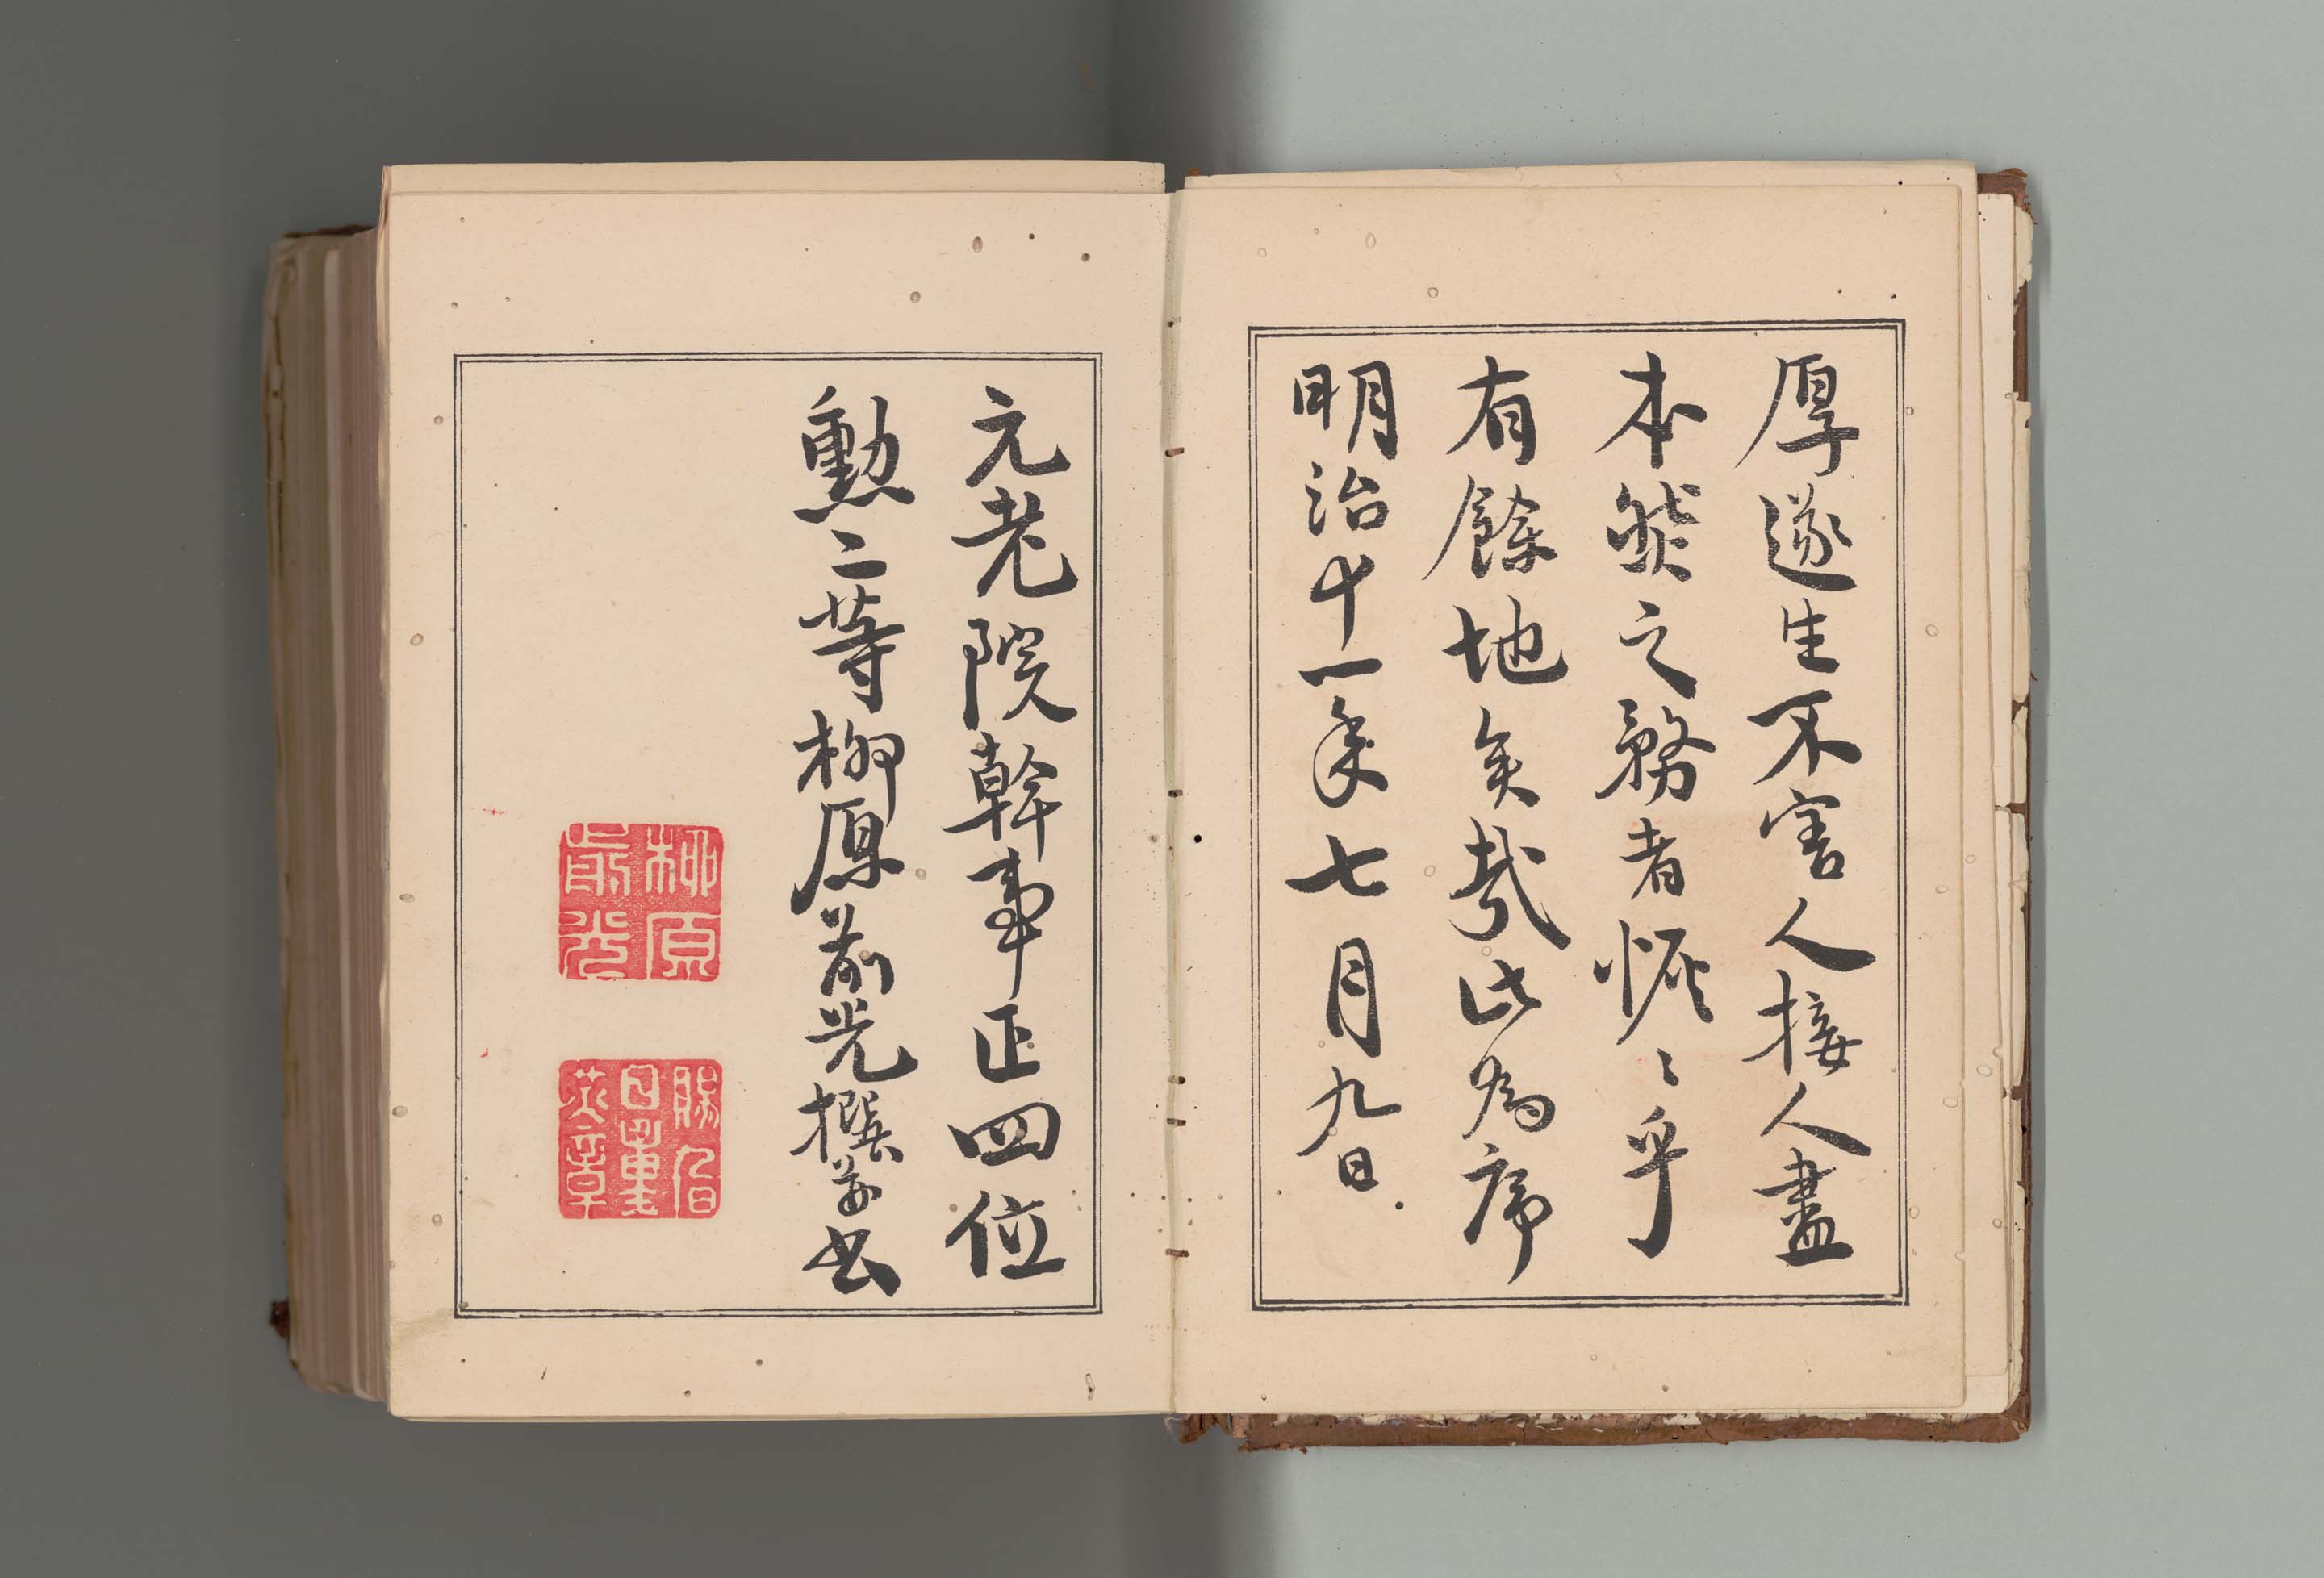 厚遂生不害人接人盡
本然之務者恢〻乎
有餘地矣哉此為序
明治十一年七月九日
元老院幹事正四位
勲二等柳原前光撰并書
柳原
前光